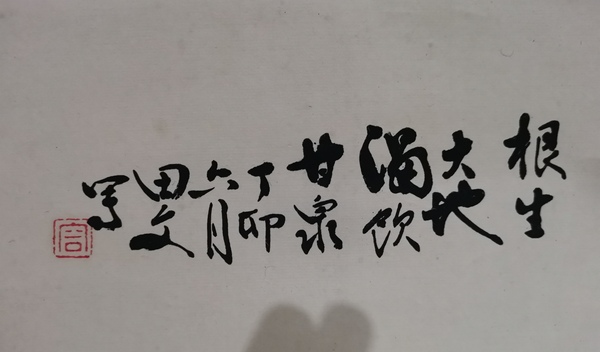 根生
大地
渴饮
甘泉
丁卯
六月
田文
写